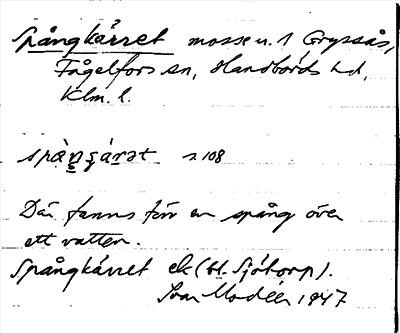 Spångkärret mosse u. 1 Gryssås,
Fågelfors sn, Handbörds hd,
Klm. l.
spàŋçárət s. 108
Där fanns förr en spång över
ett vatten.
Spångkärret ek (bl. Sjötorp).
Ivar Modéer 1947